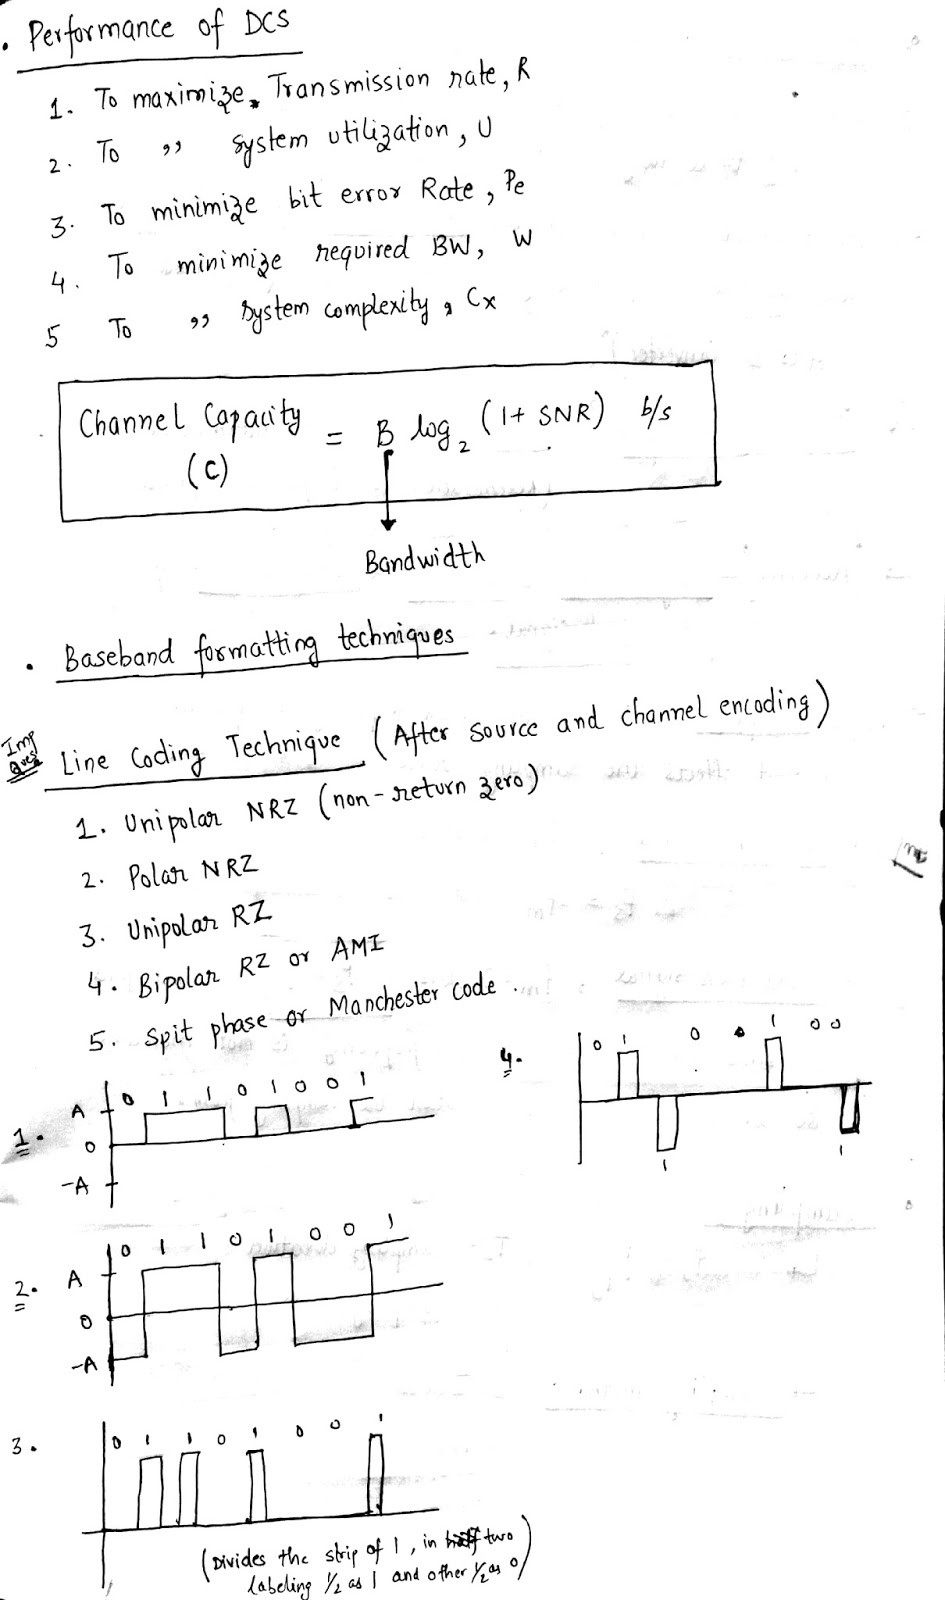 . Performance of DCS
1. To maximize Transmission rate, R
2. To ,, System utilization, U
3. To minimize bit error Rate, Pe
4. To minimize required BW, W
5 To ,, System complexity, Cx
Channel Capacity (C) = B log₂ (1+ SNR) b/s
Bandwidth
. Baseband formatting techniques
Imp Ques Line Coding Technique (After source and channel encoding)
1. Unipolar NRZ (non-return zero)
2. Polar NRZ
3. Unipolar RZ
4. Bipolar RZ or AMI
5. Spit phase or Manchester code.
4. 0 1 0 1 0 0
1 1
1. A 0 1 1 0 1 0 0 1
0
-A
2. 0 1 1 0 1 0 0 1
A
0
-A
3. 0 1 1 0 1 0 0 1
(Divides the strip of 1, in two
labeling 1/2 as 1 and other 1/2 as 0)